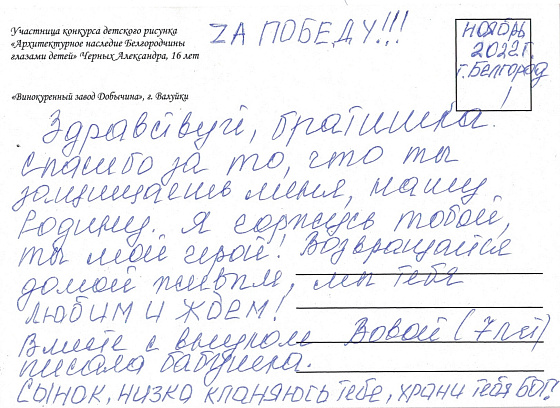 Участница конкурса детского рисунка
«Архитектурное наследие Белгородчины
глазами детей» Черных Александра, 16 лет
«Винокуренный завод Добычина», г. Валуйки
ZА ПОБЕДУ!!!
НОЯБРЬ
2022г.
г. Белгород
Здравствуй, братишка.
Спасибо за то, что ты
защищаешь меня, нашу
Родину. Я горжусь тобой,
ты мой герой! Возвращайся
домой живым, мы тебя
любим и ждем!
Вместе с внуком Вовой (7 лет)
писала бабушка.
Сынок, низко кланяюсь тебе, храни тебя Бог!